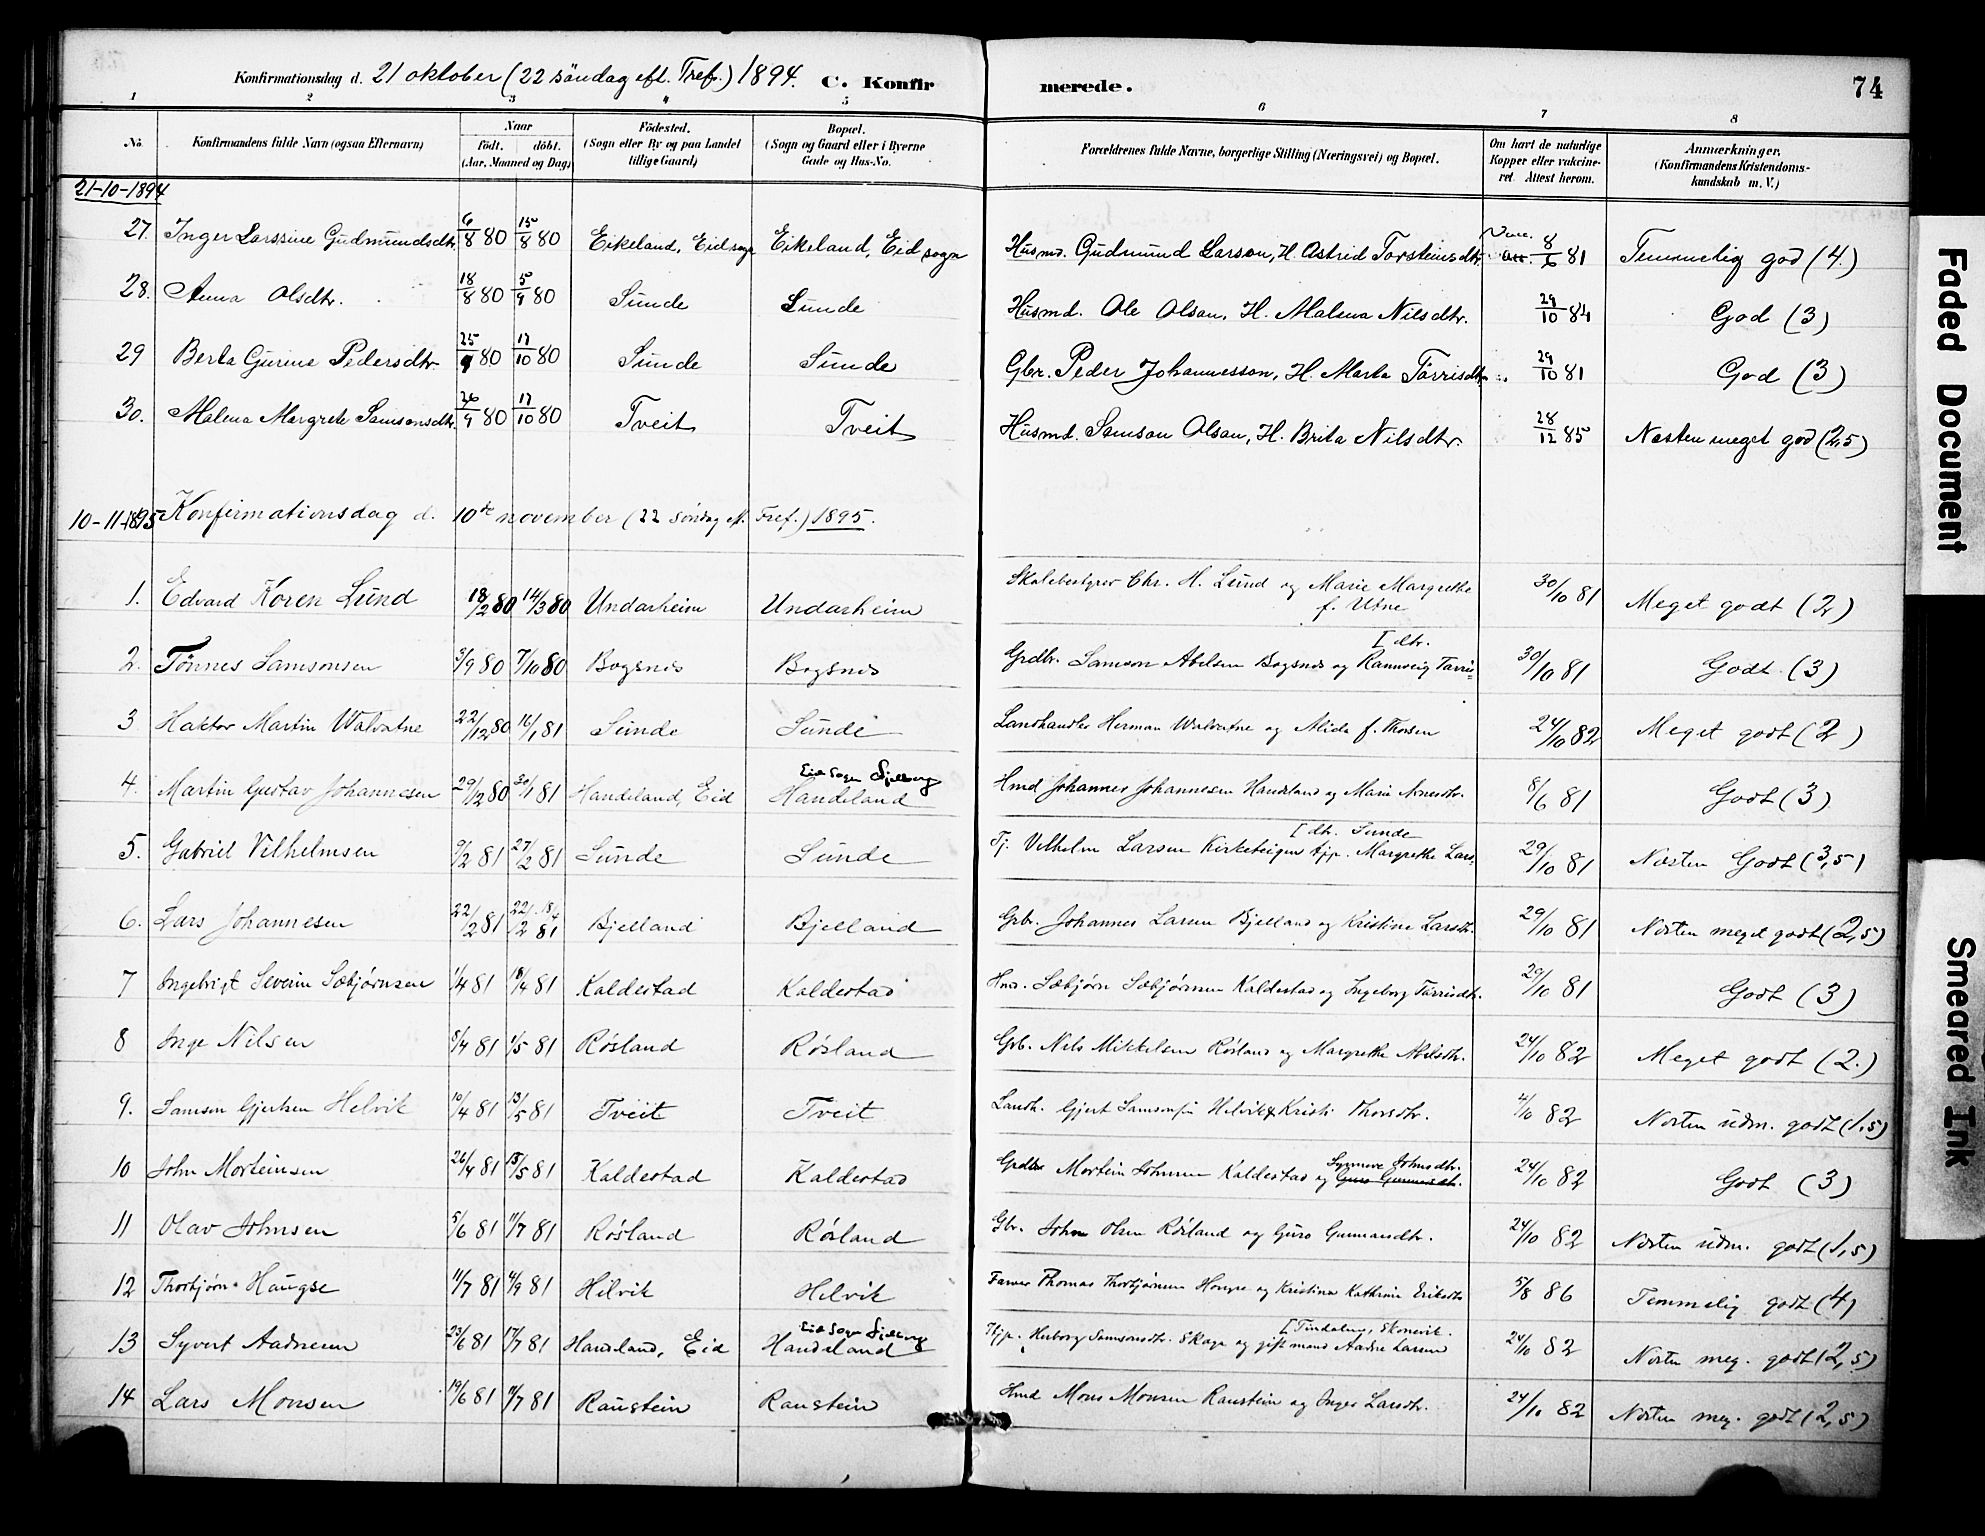 Konfirmationsdag d. 21 oktober (22 söndag eft. Tref.) 1894. C. Konfirmerede. 74
1 2 3 4 5 6 7 8
No. Konfirmandens fulde Navn (ogsaa Efternavn) Naar födt. döbt. (Aar, Maaned og Dag) Födested. (Sogn eller By og paa Landet tillige Gaard) Bopæl. (Sogn og Gaard eller i Byerne Gade og Hus-No. Forældrenes fulde Navne, borgerlige Stilling (Næringsvei) og Bopæl. Om havt de naturlige Kopper eller vakcineret. Attest herom. Anmærkninger. (Konfirmandens Kristendomskundskab m. V.)
21-10-1894
27. Inger Larssine Gudmundsdtr. 6/8 80 15/8 80 Eikeland, Eid sogn Eikeland, Eid sogn Husmd. Gudmund Larson, H. Astrid Torsteinsdtr. Vacc. att. 8/6 81 Temmelig god (4.)
28. Anna Olsdtr. 18/8 80 5/9 80 Sunde Sunde Husmd. Ole Olson, H. Malena Nilsdtr. 29/10 84 God (3)
29 Berta Gurine Pedersdtr. 25/9 80 17/10 80 Sunde Sunde Gbr. Peder Johannesson, H. Marta Tørrisdtr. 29/10 81 God (3)
30. Malena Margrete Samsonsdtr. 26/9 80 17/10 80 Tveit Tveit Husmd. Samson Olson, H. Brita Nilsdtr. 28/12 85 Næsten meget god (2,5)
10-11-1895 Konfirmationsdag d. 10de november (22 söndag ef. Tref.) 1895.
1. Edvard Koren Lund 18/2 80 14/3 80 Undarheim Undarheim Skolebestyrer Chr. H. Lund og Marie Margrethe f. Utne 30/10 81 Meget godt (2)
2. Tønnes Samsonsen 3/9 80 7/10 80 Bogsnes Bogsnes Grdbr. Samson Abelsen Bogsnes og Rannveig Tørris= [dtr. 30/10 81 Godt. (3)
3 Haktor Martin Walvatne 22/12 80 16/1 81 Sunde Sunde Landhandler Herman Walvatne og Alida f. Thorsen 24/10 82 Meget godt (2)
4. Martin Gustav Johannesen 29/12 80 30/1 81 Handeland, Eid Eid Sogn Fjelberg Handeland Hmd Johannes Johannesen Handeland og Marie Arnesdtr. 8/6 81 Godt (3)
5. Gabriel Vilhelmsen 9/2 81 27/2 81 Sunde Sunde Tj. Vilhelm Larsen Kirketeigen tjp. Margrethe Lars. [dtr. Sunde 29/10 81 Næsten Godt (3,5)
6. Lars Johannesen 22/2 81 22/2 18/4 81 Bjelland Bjelland Grb. Johannes Larsen Bjelland og Kristine Larsdtr. 29/10 81 Næsten meget godt (2,5)
7 Ingebrigt Severin Sæbjørnsen 1/4 81 18/4 81 Kaldestad Kaldestad Hmd. Sæbjørn Sæbjørnsen Kaldestad og Ingeborg Tørrisdtr. 29/10 81 Godt (3)
8 Inge Nilsen 5/4 81 1/5 81 Røsland Røsland Grb. Nils Mikkelsen Røsland og Margrethe Nilsdtr. 24/10 82 Meget godt (2.)
9. Samson Gjertsen Helvik 10/4 81 13/5 81 Tveit Tveit Landh. Gjert Samsonsen Helvik & Kristi Thorsdtr. 4/10 82 Næsten udm. godt (1,5)
10 John Morteinsen 26/4 81 15/5 81 Kaldestad Kaldestad Grdbr Mortein Johnsen Kaldestad og Guro Gunnarsdt. Synneve Johnsdtr. 24/10 82 Godt (3)
11 Olav Johnsen 5/6 81 11/7 81 Røsland Røsland Gbr. John Olsen Røsland og Guro Gunnarsdtr. 24/10 82 Næsten udm. godt (1,5)
12 Thorbjørn Haugse 11/7 81 4/9 81 Helvik Helvik Farver Thomas Thorbjørnsen Haugse og Kristine Kathrine Eriksdtr 5/8 86 Temmelig godt (4)
13 Syvert Aadnesen 23/6 81 17/7 81 Handeland, Eid Eid Sogn Fjelberg Handeland Tjp. Herborg Samsonsdtr. Skage og gift mand Aadne Larsen [Tindalen, Skonevik. 24/10 82 Næsten meg. godt (2,5)
14 Lars Monsen 19/6 81 11/7 81 Raustein Raustein Hmd Mons Monsen Raustein og Inger Larsdtr. 24/10 82 Næsten meg. godt (2,5)
Faded Document
Smeared Ink